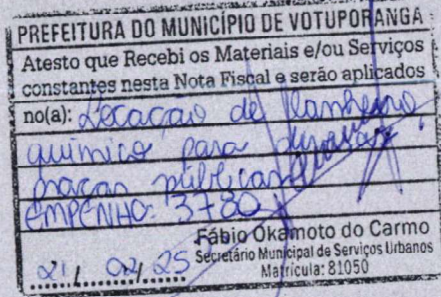 PREFEITURA DO MUNICÍPIO DE VOTUPORANGA
Atesto que Recebi os Materiais e/ou Serviços
constantes nesta Nota Fiscal e serão aplicados
no(a): Locação de Banheiro
químico para diversas
praças públicas
EMPENHO: 3780
Fábio Okamoto do Carmo
Secretário Municipal de Serviços Urbanos
Matrícula: 81050
21/02/25